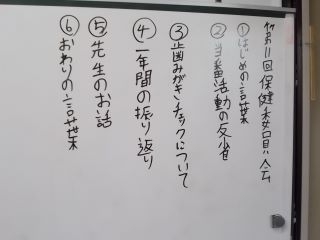 第11回保健委員会
①はじめの言葉
②当番活動の反省
③歯みがきチェックについて
④一年間の振り返り
⑤先生のお話
⑥おわりの言葉